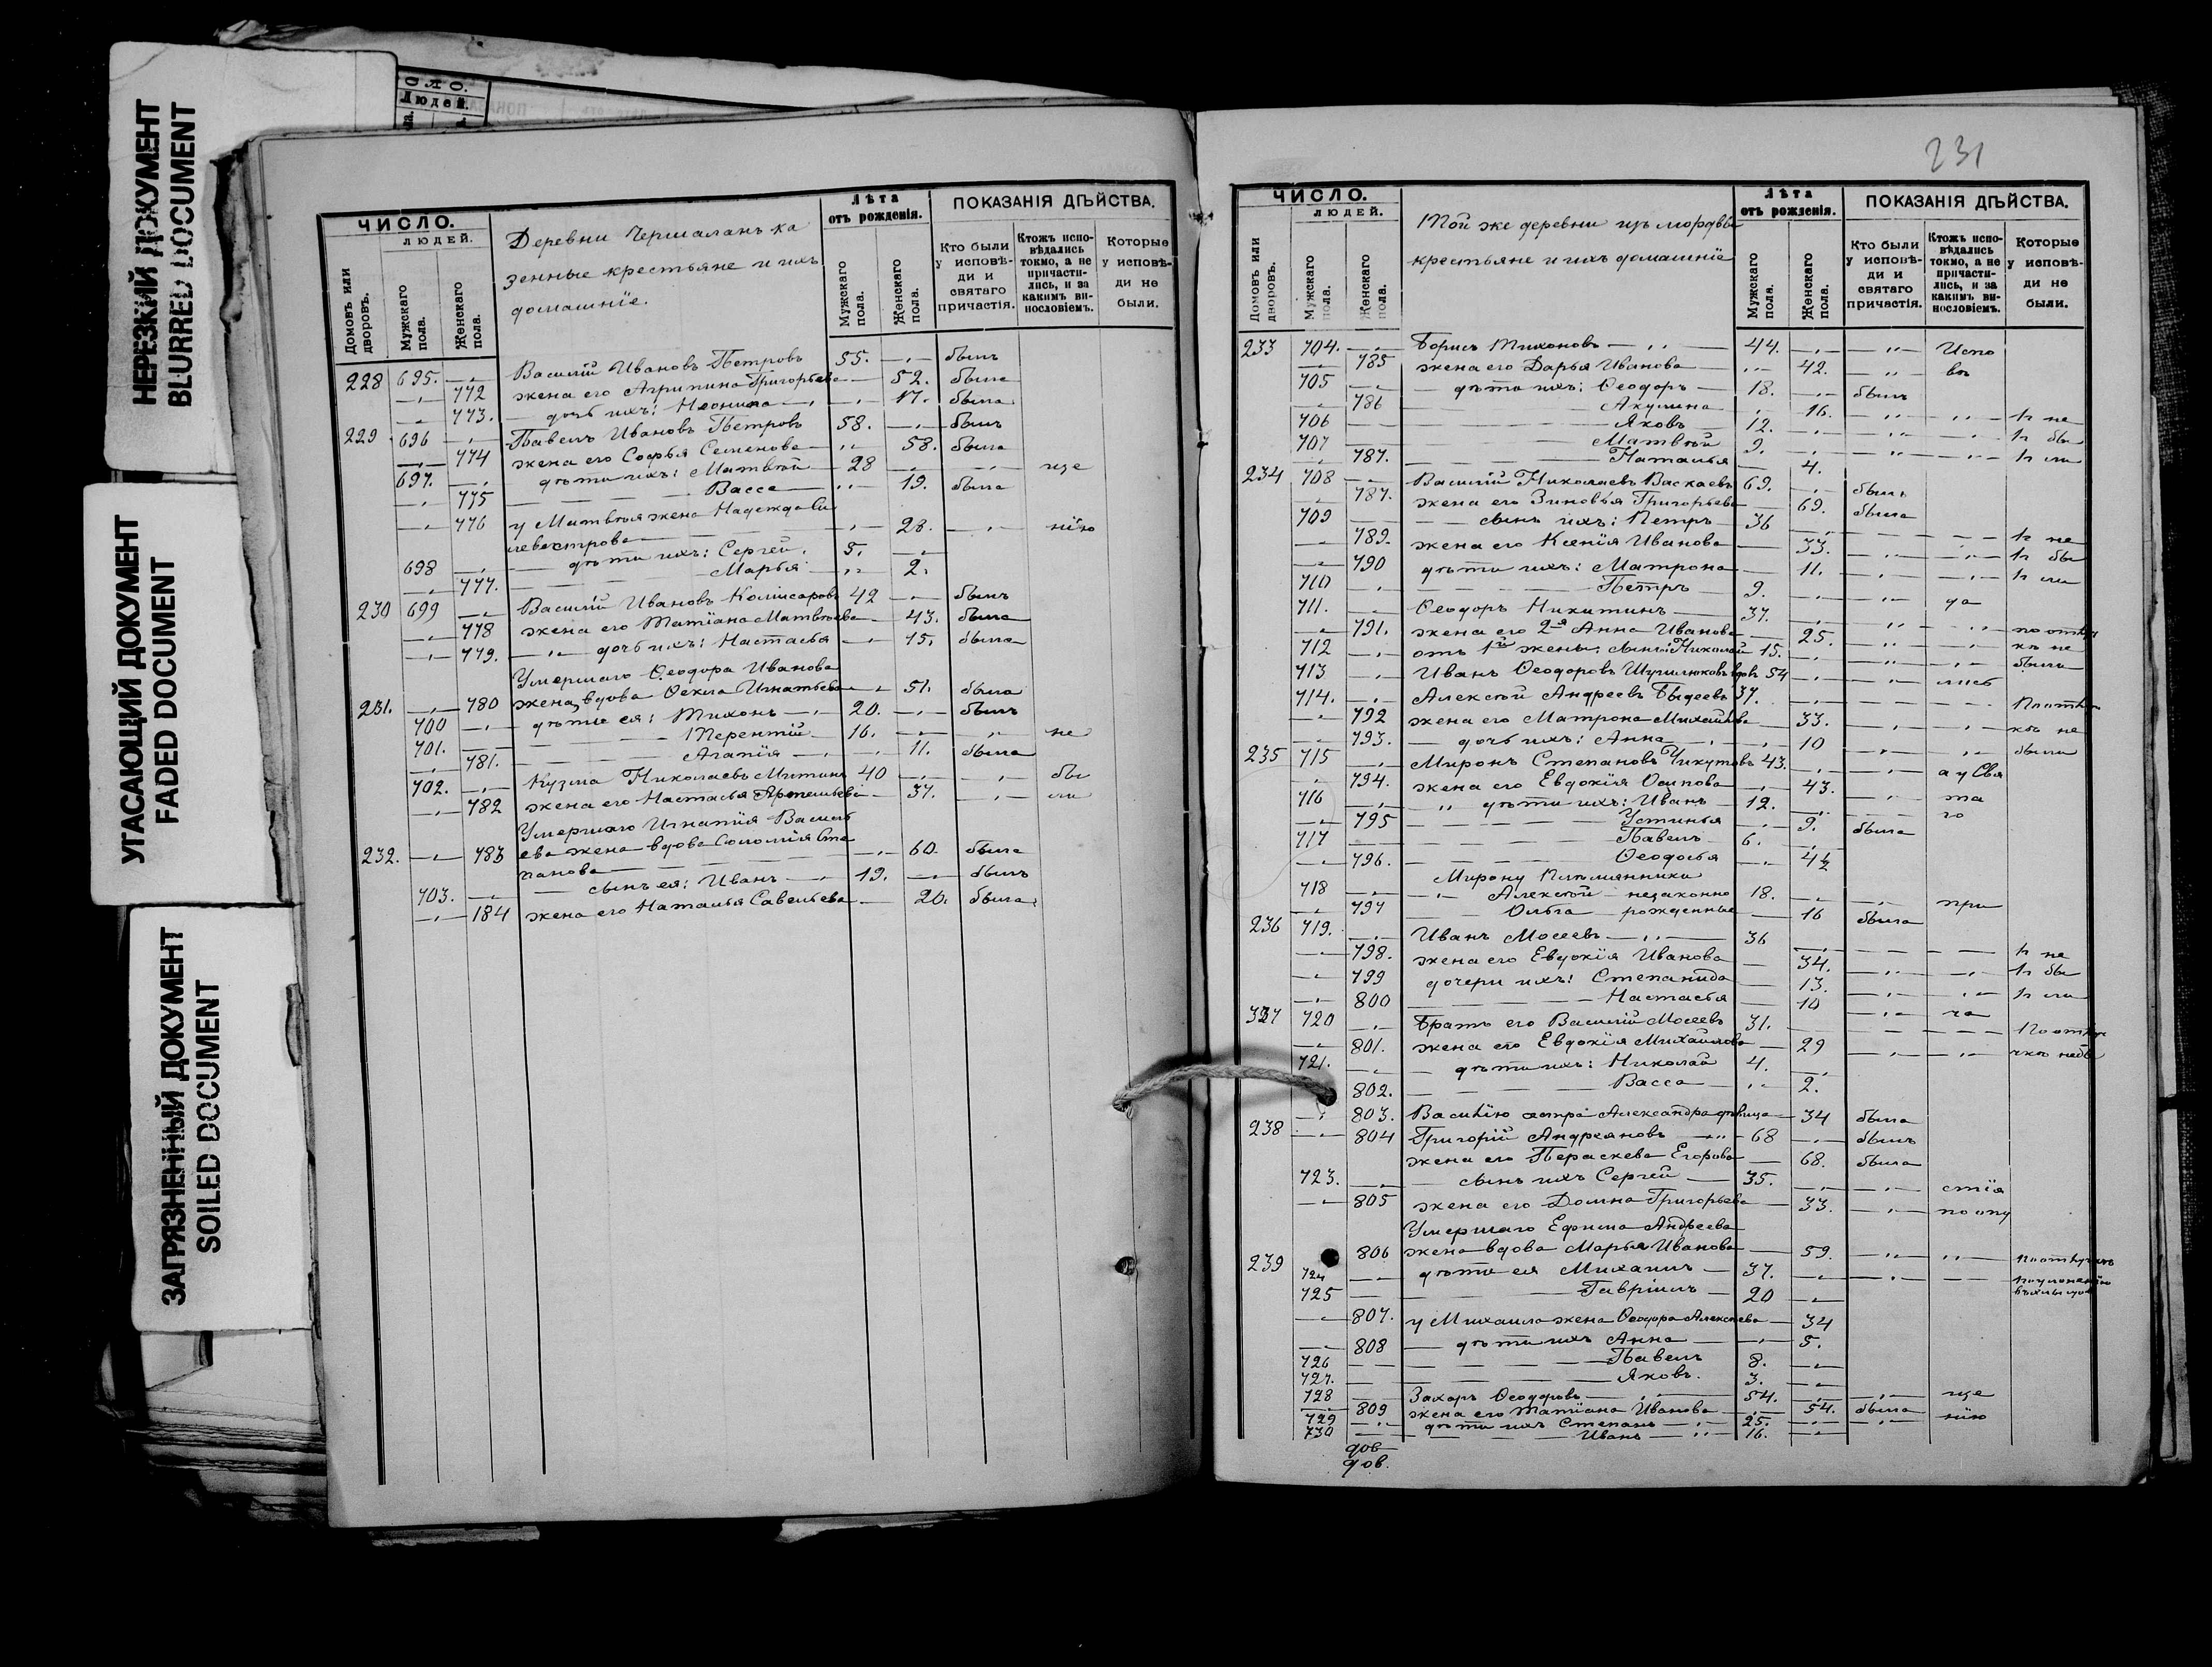 НЕРЕЗКИЙ ДОКУМЕНТ
BLURRED DOCUMENT
УГАСАЮЩИЙ ДОКУМЕНТ
FADED DOCUMENT
ЗАГРЯЗНЕННЫЙ ДОКУМЕНТ
SOILED DOCUMENT
Людей.
ЧИСЛО.
ЛЮДЕЙ.
Домовъ или дворовъ.
Мужскаго пола.
Женскаго пола.
Деревни Чершаланъ ка
зенные крестьяне и ихъ
домашніе.
Лѣта
отъ рожденія.
Мужскаго пола.
Женскаго пола.
ПОКАЗАНІЯ ДѢЙСТВА.
Кто были у исповѣди и святаго причастія.
Ктожъ исповѣдались токмо, а не причастились, и за какимъ винословіемъ.
Которые у исповѣди не были.
228 695. Василій Ивановъ Петровъ 55. былъ
772 жена его Агрипина Григорьева 52. была
773. дочь ихъ: Неонила 17. была
229 696 Павелъ Ивановъ Петровъ 58. былъ
774 жена его Софья Семенова 58. была
697. дѣти ихъ: Матвѣй 28 ще
775 Васса 19. была
776 у Матвѣя жена Надежда Си
ливестрова 28. нію
698 дѣти ихъ: Сергей. 5.
777. Марья 2.
230 699 Василій Ивановъ Комисаровъ 42 былъ
778 жена его Татіана Матвѣева 43. была
779. дочь ихъ: Настасья 15. была
Умершаго Ѳеодора Иванова
231. 780 жена вдова Ѳекла Игнатьева 51. была
700 дѣти ея: Тихонъ 20. былъ
701. Терентій 16. не
781. Агапія 11. была
702. Кузма Николаевъ Митинъ 40 бы
782 жена его Настасья Артемьева 37. ли
Умершаго Игнатія Василь
232. 783 ева жена вдова Соломія Сте
панова 60. была
703. сынъ ея: Иванъ 19. былъ
184 жена его Наталья Савельева 20. была
231
ЧИСЛО.
ЛЮДЕЙ.
Домовъ или дворовъ.
Мужскаго пола.
Женскаго пола.
Той же деревни изъ мордвы
крестьяне и ихъ домашніе
Лѣта
отъ рожденія.
Мужскаго пола.
Женскаго пола.
ПОКАЗАНІЯ ДѢЙСТВА.
Кто были у исповѣди и святаго причастія.
Ктожъ исповѣдались токмо, а не причастились, и за какимъ винословіемъ.
Которые у исповѣди не были.
233 704. Борисъ Тихоновъ 44. Испо
785 жена его Дарья Иванова 42. вѣ
705 дѣти ихъ: Ѳеодоръ 18. былъ
786 Акулина 16.
706 Яковъ 12. не
707 Матвѣй 9. бы
787. Наталья 4. ли
234 708 Василій Николаевъ Васкаевъ 69. былъ
787. жена его Зиновья Григорьева 69. была
709 сынъ ихъ: Петръ 36
789. жена его Ксенія Иванова 33. не
790 дѣти ихъ: Матрона 11. бы
710 Петръ 9. ли
711. Ѳеодоръ Никитинъ 37. да
791. жена его 2я Анна Иванова 25.
712 отъ 1й жены сынъ Николай 15. не
713 Иванъ Ѳеодоровъ вдов 54 были
714. Алексѣй Андреевъ Бѣдеевъ 37. лись
792 жена его Матрона Михайлова 33.
793. дочь ихъ: Анна 10 не
235 715 Миронъ Степановъ Чикутовъ 43. были
794. жена его Евдокія Осипова 43. а у Свя
716 дѣти ихъ: Иванъ 12. та
795 Устинья 9. го
717 Павелъ 6. была
796. Ѳеодосья 4½
Мирону племянники
718 Алексѣй незаконно 18.
797 Ольга рожденные 16 была при
236 719. Иванъ Мосеевъ 36
798. жена его Евдокія Иванова 34. не
799 дочери ихъ: Степанида 13. бы
800 Настасья 10 ли
327 720 Братъ его Василій Мосеевъ 31. ча
801. жена его Евдокія Михайлова 29
721. дѣти ихъ: Николай 4.
802. Васса 2.
803. Василію сестра Александра дѣвица 34 была
238 804 Григорій Андреяновъ 68 былъ
жена его Параскева Егорова 68. была
723. сынъ ихъ Сергей 35. стія
805 жена его Домна Григорьева 33. по опу
Умершаго Ефима Андреева
239 806 жена вдова Марья Иванова 59.
724 дѣти ея Михаилъ 37.
725 Гавріилъ 20
807. у Михаила жена Ѳеодора Алексѣева 34
808 дѣти ихъ Анна 5.
726 Павелъ 8.
727. Яковъ. 3.
728 Захаръ Ѳеодоровъ 54. ще
809 жена его Татіана Иванова 54. была нію
729 дѣти ихъ Степанъ 25.
730 Иванъ 16.